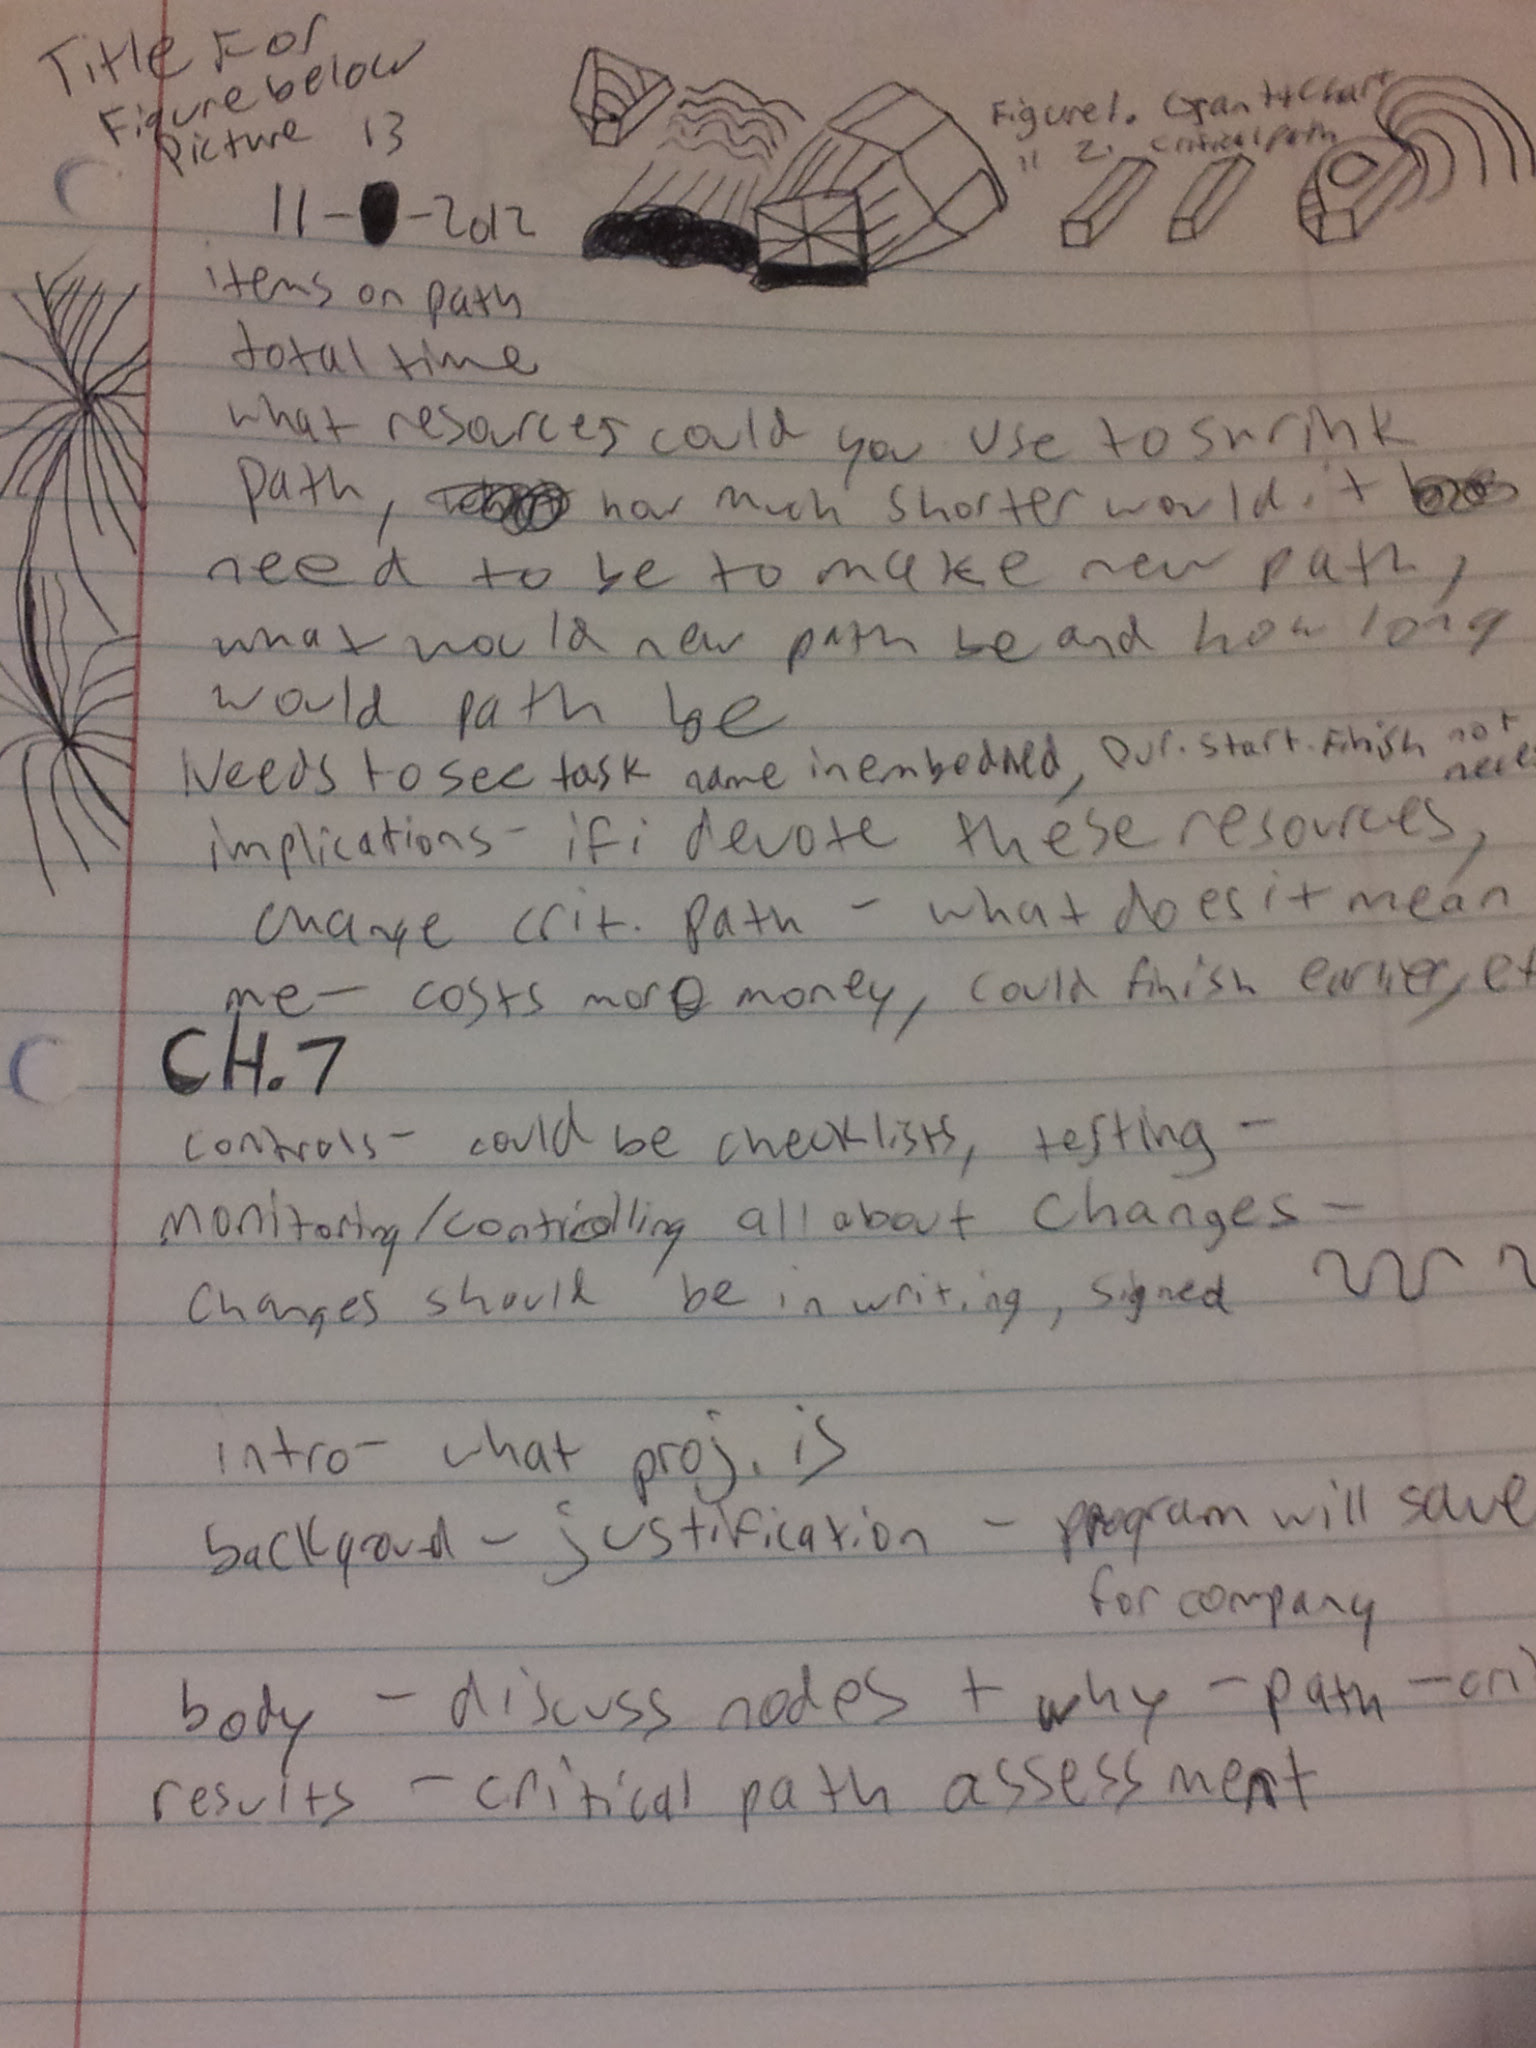 Title For
Figure below
Picture 13
Figure 1. Gantt Chart
11 2. critical path
11- -2012
items on path
total time
what resources could you use to shrink
path, how much shorter would it
need to be to make new path,
what would new path be and how long
would path be
Needs to see task name in embedded, Dur. Start. Finish not
implications - if i devote these resources,
change crit. path - what does it mean
me - costs more money, could finish earlier, et
CH. 7
controls - could be checklists, testing -
monitoring/controlling all about changes -
changes should be in writing, signed
intro - what proj. is
background - justification - program will save
for company
body - discuss nodes + why - path - cri
results - critical path assessment